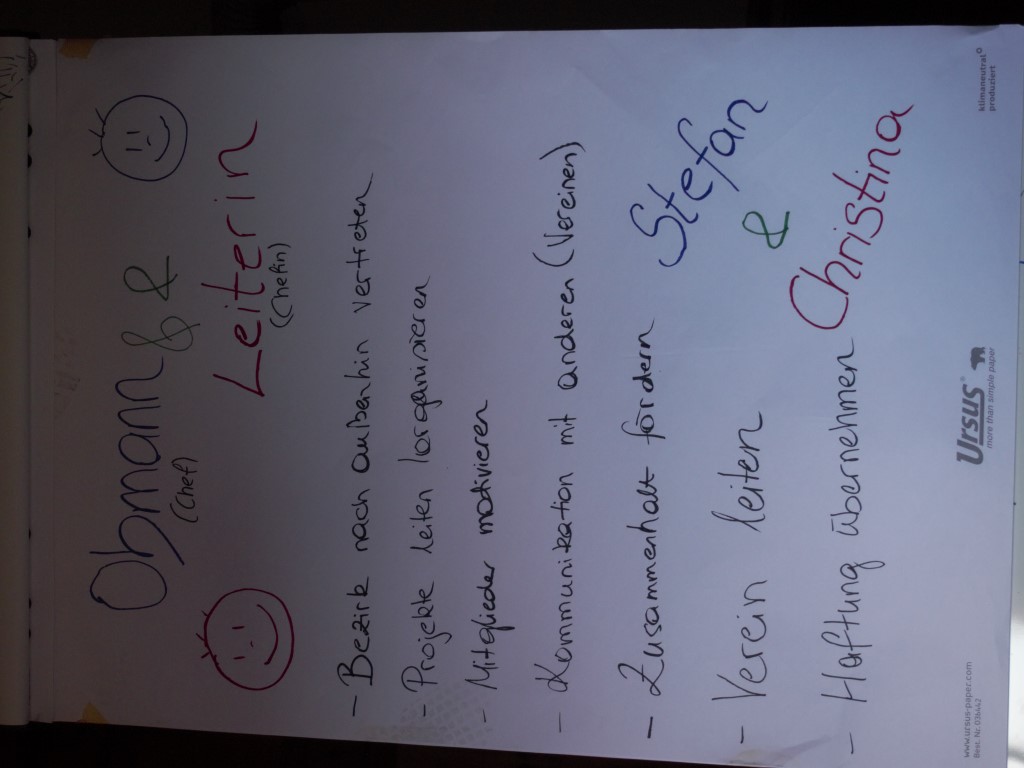 Obmann &
(Chef)
Leiterin
(Chefin)
- Bezirk nach außenhin vertreten
- Projekte leiten / organisieren
- Mitglieder motivieren
- Kommunikation mit anderen (Vereinen)
- Zusammenhalt fördern
- Verein leiten
- Haftung übernehmen
Stefan
&
Christina
www.ursus-paper.com
Best. Nr. 036442
Ursus®
more than simple paper
klimaneutral
produziert